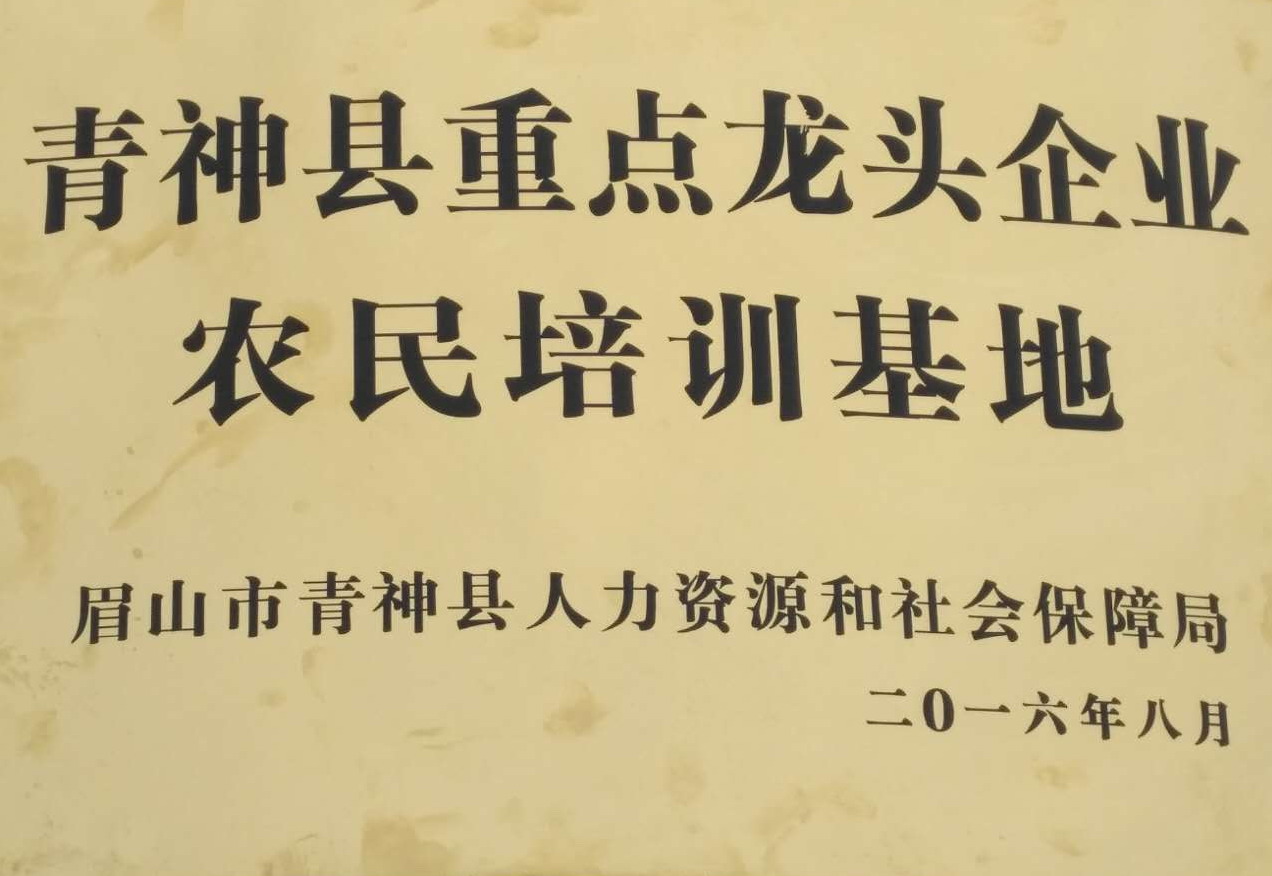 青神县重点龙头企业
农民培训基地
眉山市青神县人力资源和社会保障局
二0一六年八月